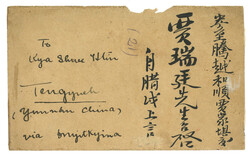 To
Kya Shwe Htin
Tengyueh
(Yunnan China)
via Myitkyina
(21)
騰越和順
賈瑞廷先生台啓
自臘戌上言